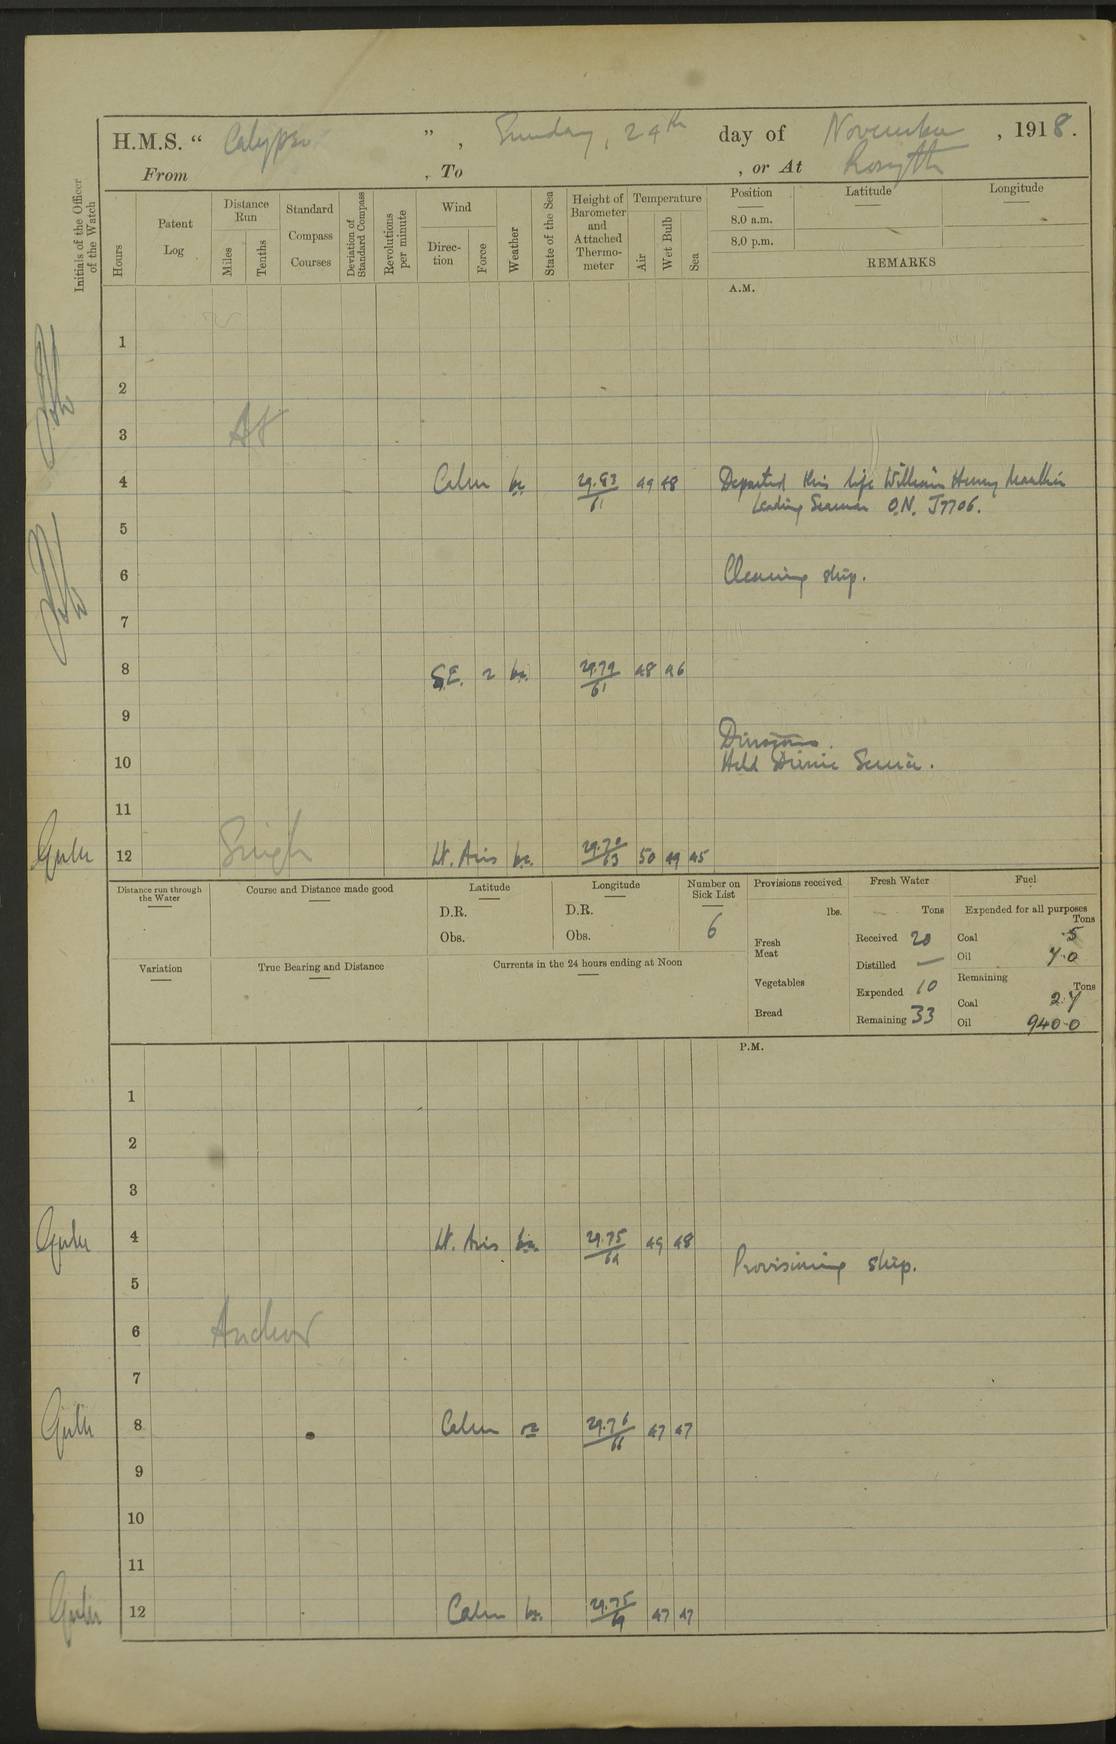 H.M.S. “ Calypso ” , Sunday, 24th day of November , 1918.
From , To , or At Rosyth
Initials of the Officer of the Watch
Hours
Patent Log
Distance Run
Miles
Tenths
Standard Compass Courses
Deviation of Standard Compass
Revolutions per minute
Wind
Direction
Force
Weather
State of the Sea
Height of Barometer and Attached Thermometer
Temperature
Air
Wet Bulb
Sea
Position
8.0 a.m.
8.0 p.m.
Latitude
Longitude
REMARKS
A.M.
1
2
3 At
4 Calm bc 29.83/61 49 48 Departed this life William Henry
Leading Seaman O.N. J7706.
5
6 Cleaning ship.
7
8 S.E. 2 bc. 29.79/61 48 46
9
Divisions.
10 Held Divine Service.
11
12 Single Lt. Airs bc. 29.70/63 50 49 45
Distance run through the Water
Course and Distance made good
Latitude
D.R.
Obs.
Longitude
D.R.
Obs.
Number on Sick List
6
Provisions received
lbs.
Fresh Meat
Vegetables
Bread
Fresh Water
Tons
Received 20
Distilled —
Expended 10
Remaining 33
Fuel
Expended for all purposes
Tons
Coal .5
Oil 7.0
Remaining
Tons
Coal 27
Oil 940.0
Variation
True Bearing and Distance
Currents in the 24 hours ending at Noon
P.M.
1
2
3
4 Lt. Airs bc. 29.75/64 49 48
Provisioning ship.
5
6 Anchor
7
8 Calm 29.76/66 47 47
9
10
11
12 Calm bc. 29.75/69 47 47